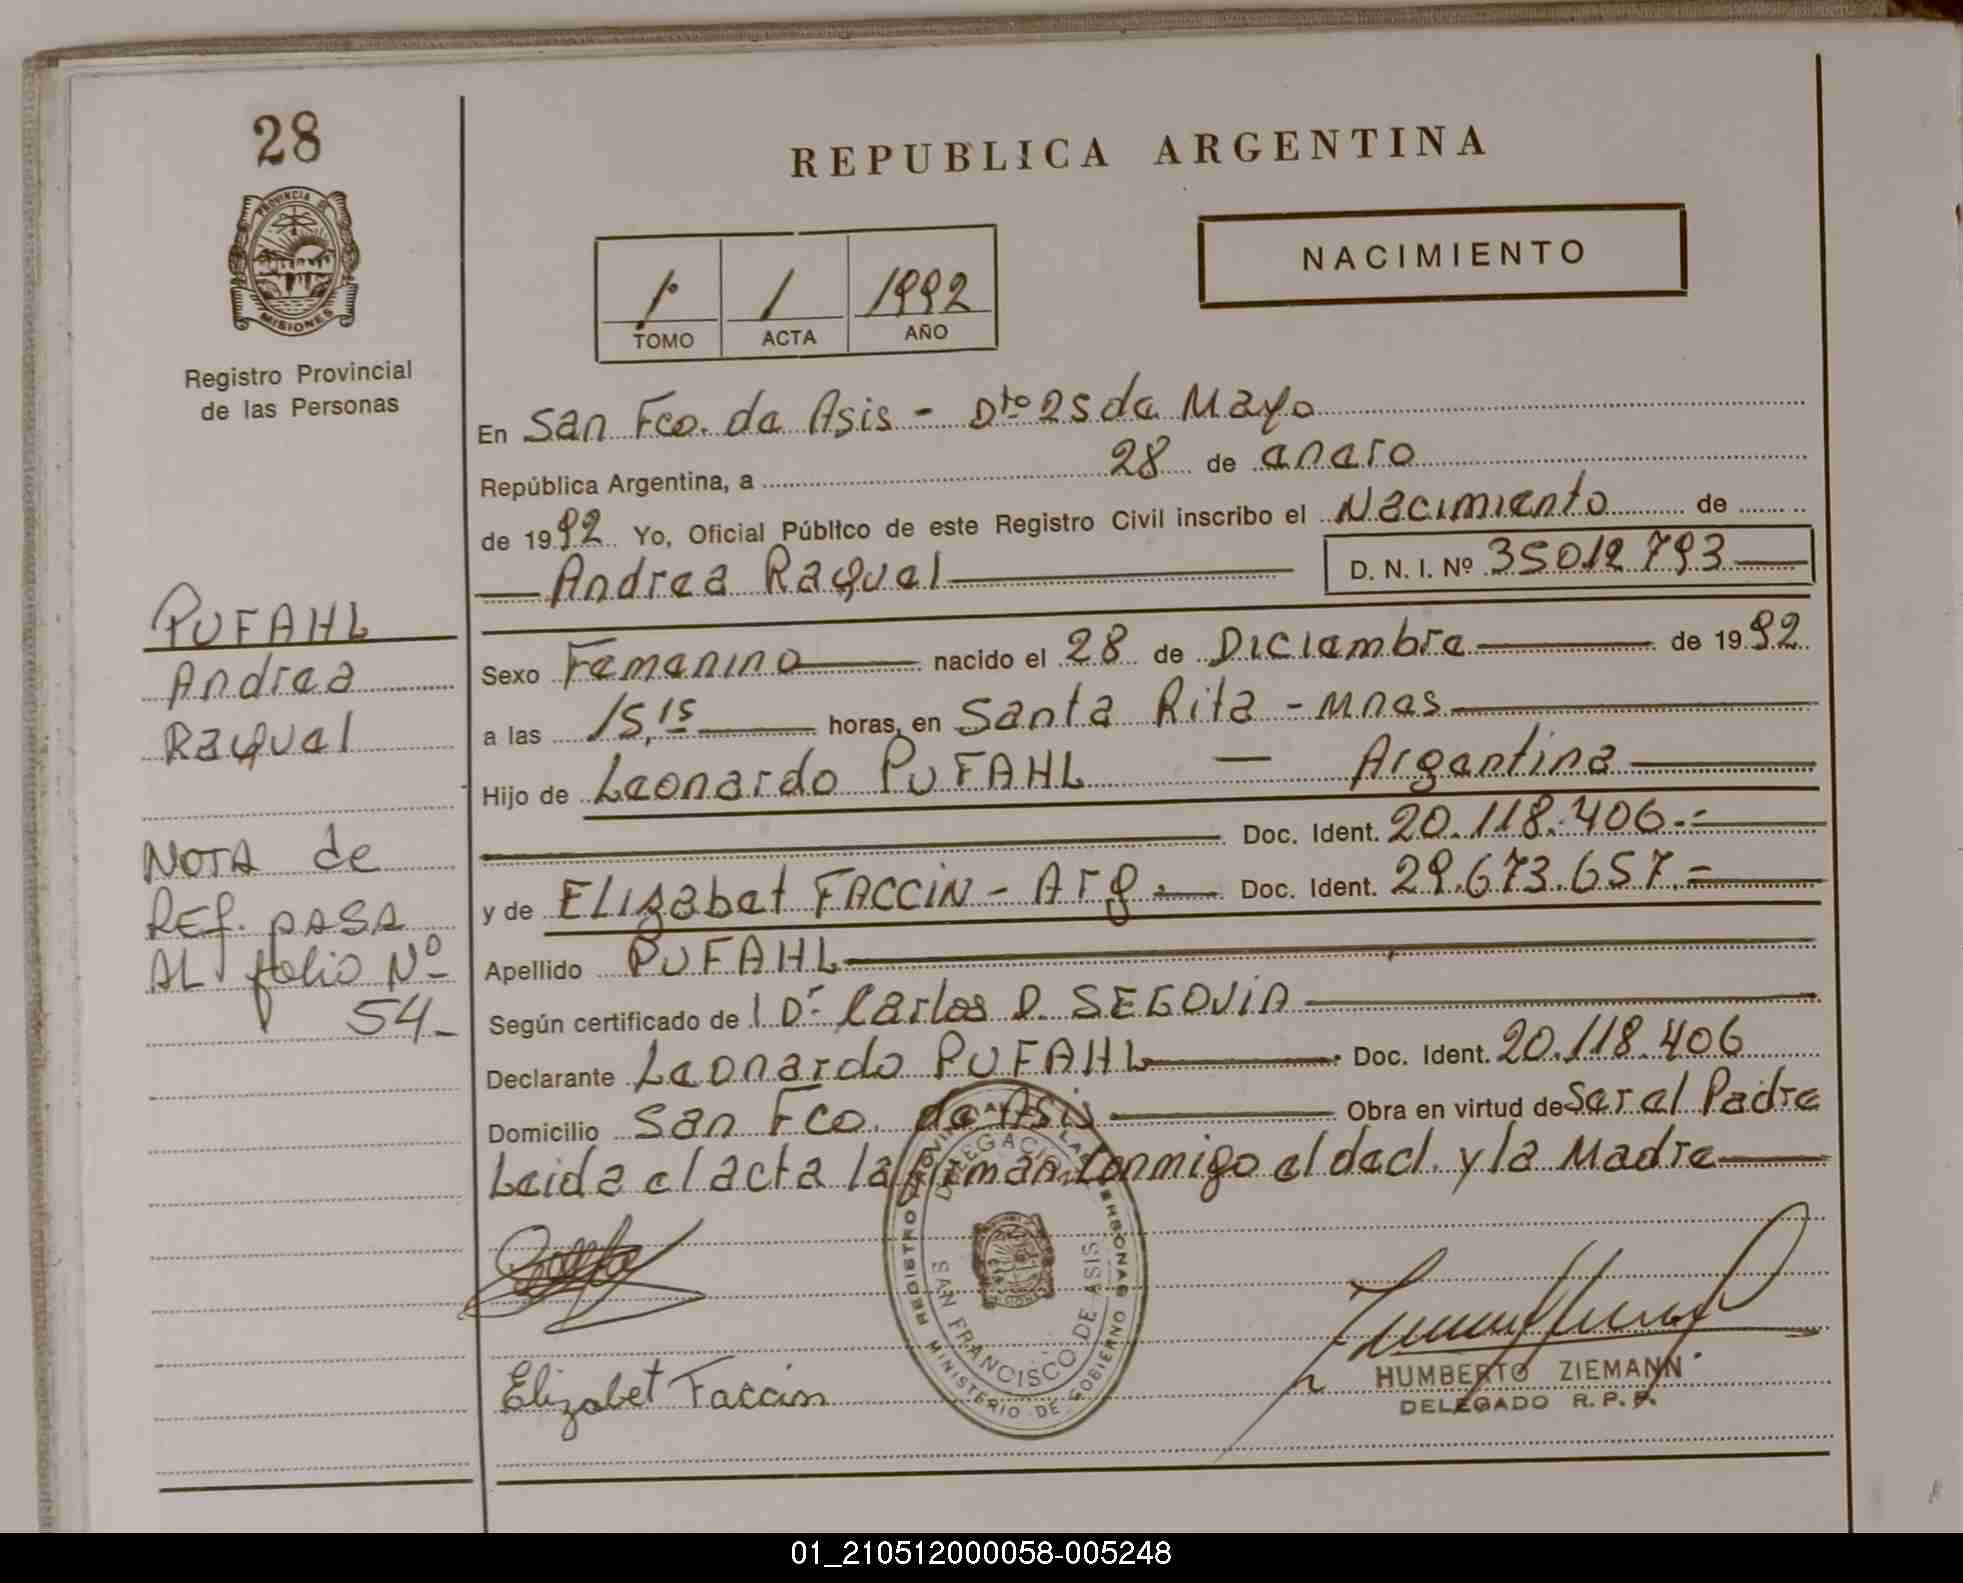 28
PROVINCIA DE
MISIONES
Registro Provincial
de las Personas
REPUBLICA ARGENTINA
NACIMIENTO
1º 1 1992
TOMO ACTA AÑO
En San Fco. de Asis - Dto 25 de Mayo
República Argentina, a 28 de enero
de 1992 Yo, Oficial Público de este Registro Civil inscribo el Nacimiento de
Andrea Raquel D. N. I. Nº 35012793
Sexo Femenino nacido el 28 de Diciembre de 1992
a las 15,15 horas, en Santa Rita - Mnes
Hijo de Leonardo PUFAHL — Argentina
Doc. Ident. 20.118.406.-
y de Elizabet FACCIN - Arg. Doc. Ident. 29.673.657.=
Apellido PUFAHL
Según certificado de Dr. Carlos D. SEGOVIA
Declarante Leonardo PUFAHL Doc. Ident. 20.118.406
Domicilio San Fco. de Asis Obra en virtud de Ser el Padre
Leida el acta la firman conmigo el decl. y la Madre
PUFAHL
Andrea
Raquel
NOTA de
REf. pASA
AL folio Nº
54-
Elizabet Faccin
REGISTRO PROVINCIAL DE LAS PERSONAS
MINISTERIO DE GOBIERNO
DELEGACION
SAN FRANCISCO DE ASIS
HUMBERTO ZIEMANN
DELEGADO R. P. P.
01_210512000058-005248